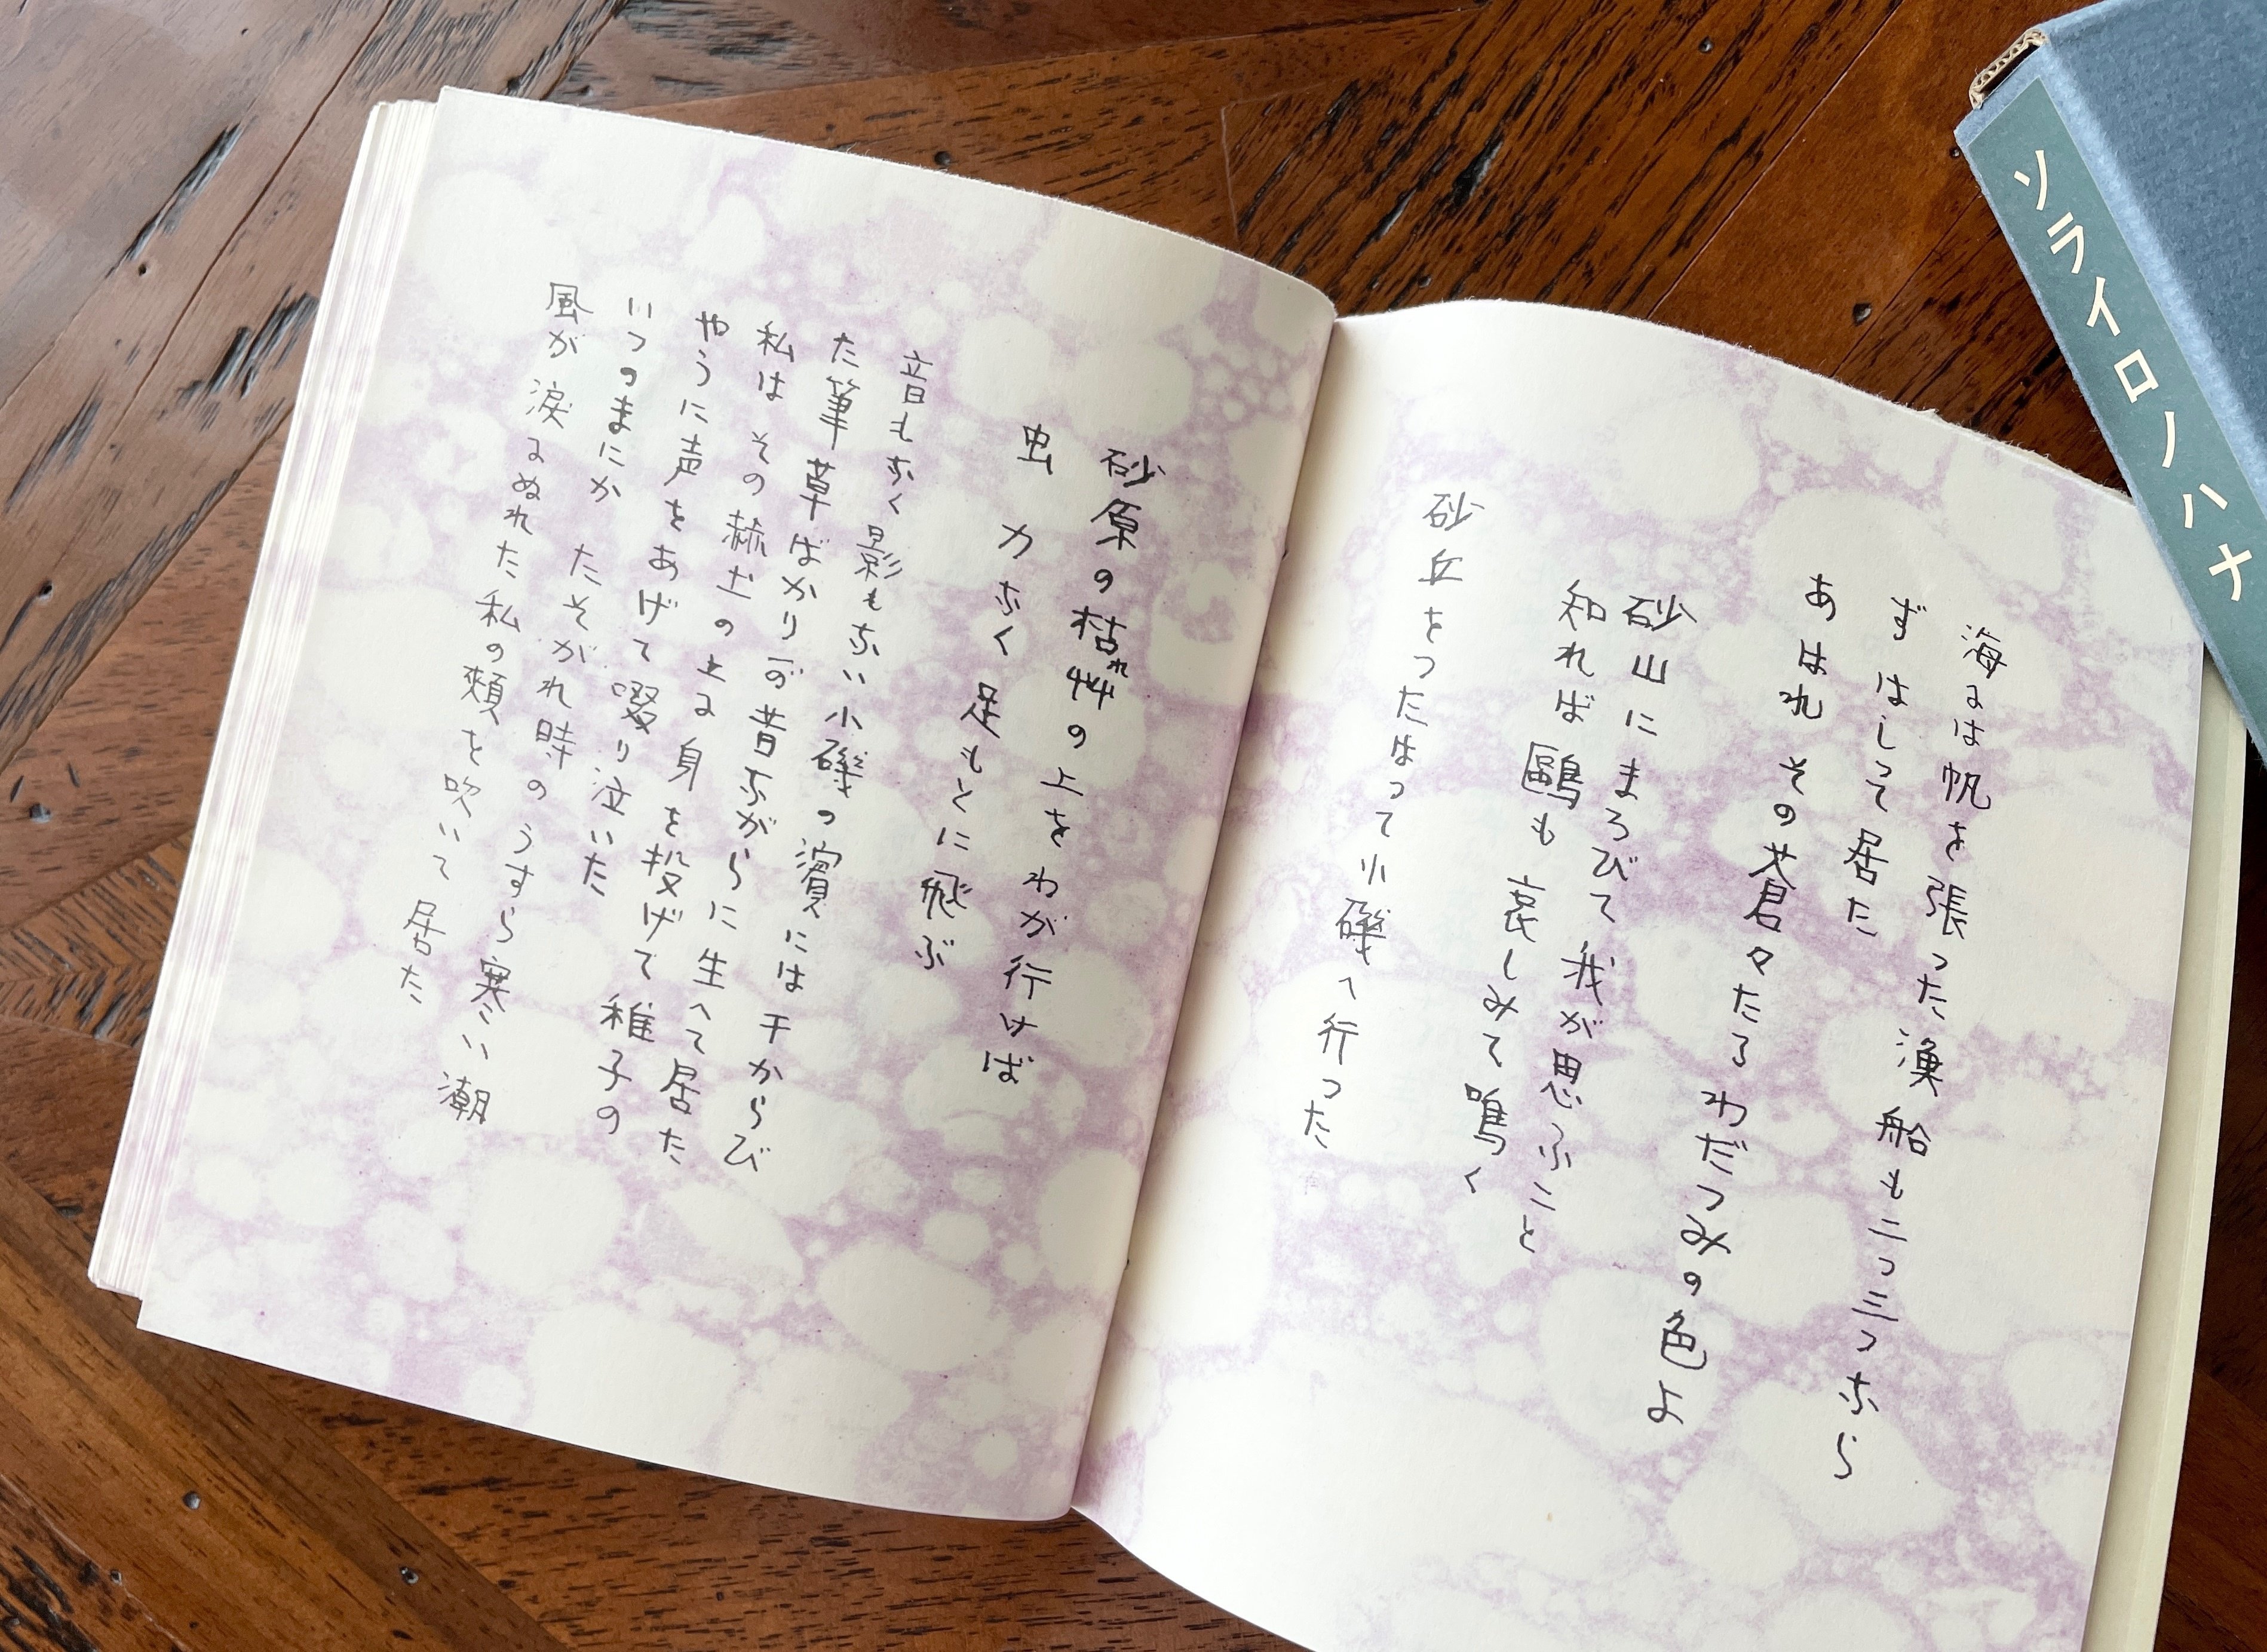 海には帆を張った漁船も二つ三つなら
ずはしって居た
あはれその蒼々たるわだつみの色よ
砂山にまろびて我が思ふこと
知れば鷗も哀しみて鳴く
砂丘をつたはって小磯へ行った
砂原の枯れ艸の上をわが行けば
虫力なく足もとに飛ぶ
音もなく影もない小磯の濱には干からび
た筆草ばかりが昔ながらに生へて居た
私はその赫土の上に身を投げて稚子の
やうに声をあげて啜り泣いた
いつのまにかたそがれ時のうすら寒い潮
風が涙にぬれた私の頬を吹いて居た
ソライロノハナ